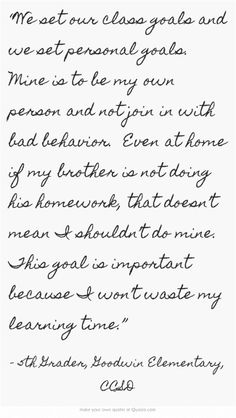 "We set our class goals and
we set personal goals.
Mine is to be my own
person and not join in with
bad behavior. Even at home
if my brother is not doing
his homework, that doesn't
mean I shouldn't do mine.
This goal is important
because I won't waste my
learning time."
- 5th Grader, Goodwin Elementary,
CCSD
make your own quotes at Quozio.com